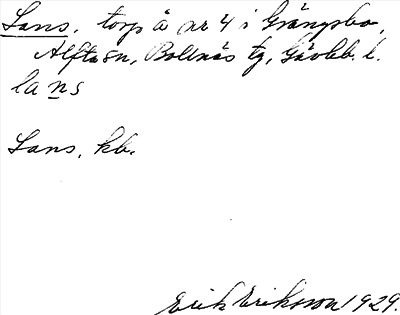 Lans, torp å nr 4 i Grängsbo,
Alfta sn, Bollnäs tg, Gävleb. l.
lans
Lans, kb.
Erik Eriksson 1929.